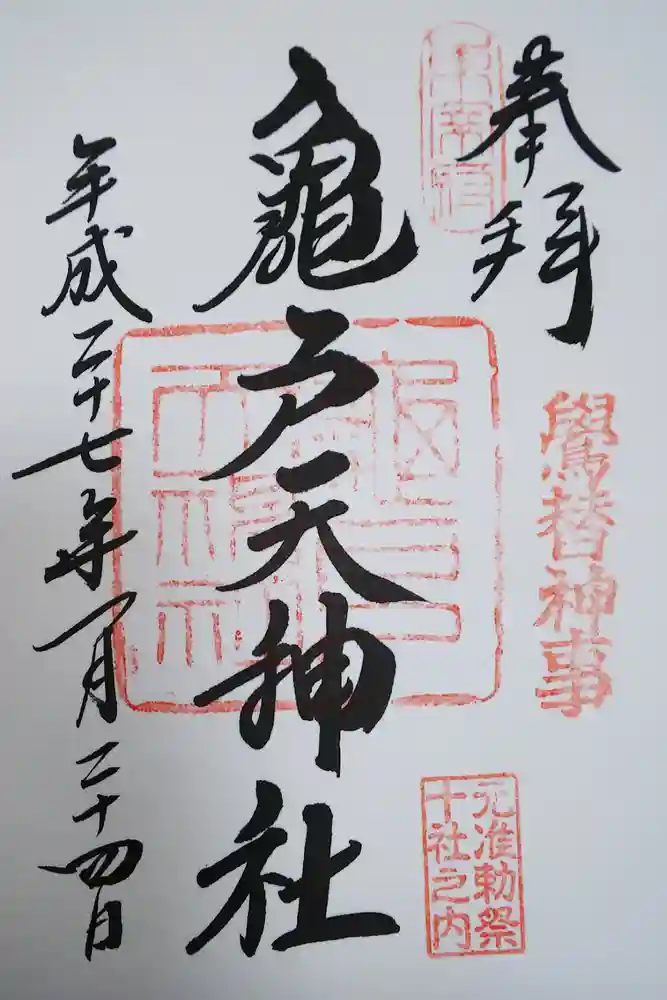 奉拝
鷽替神事
元准勅祭
十社之内
亀戸天神社
平成二十七年一月二十四日